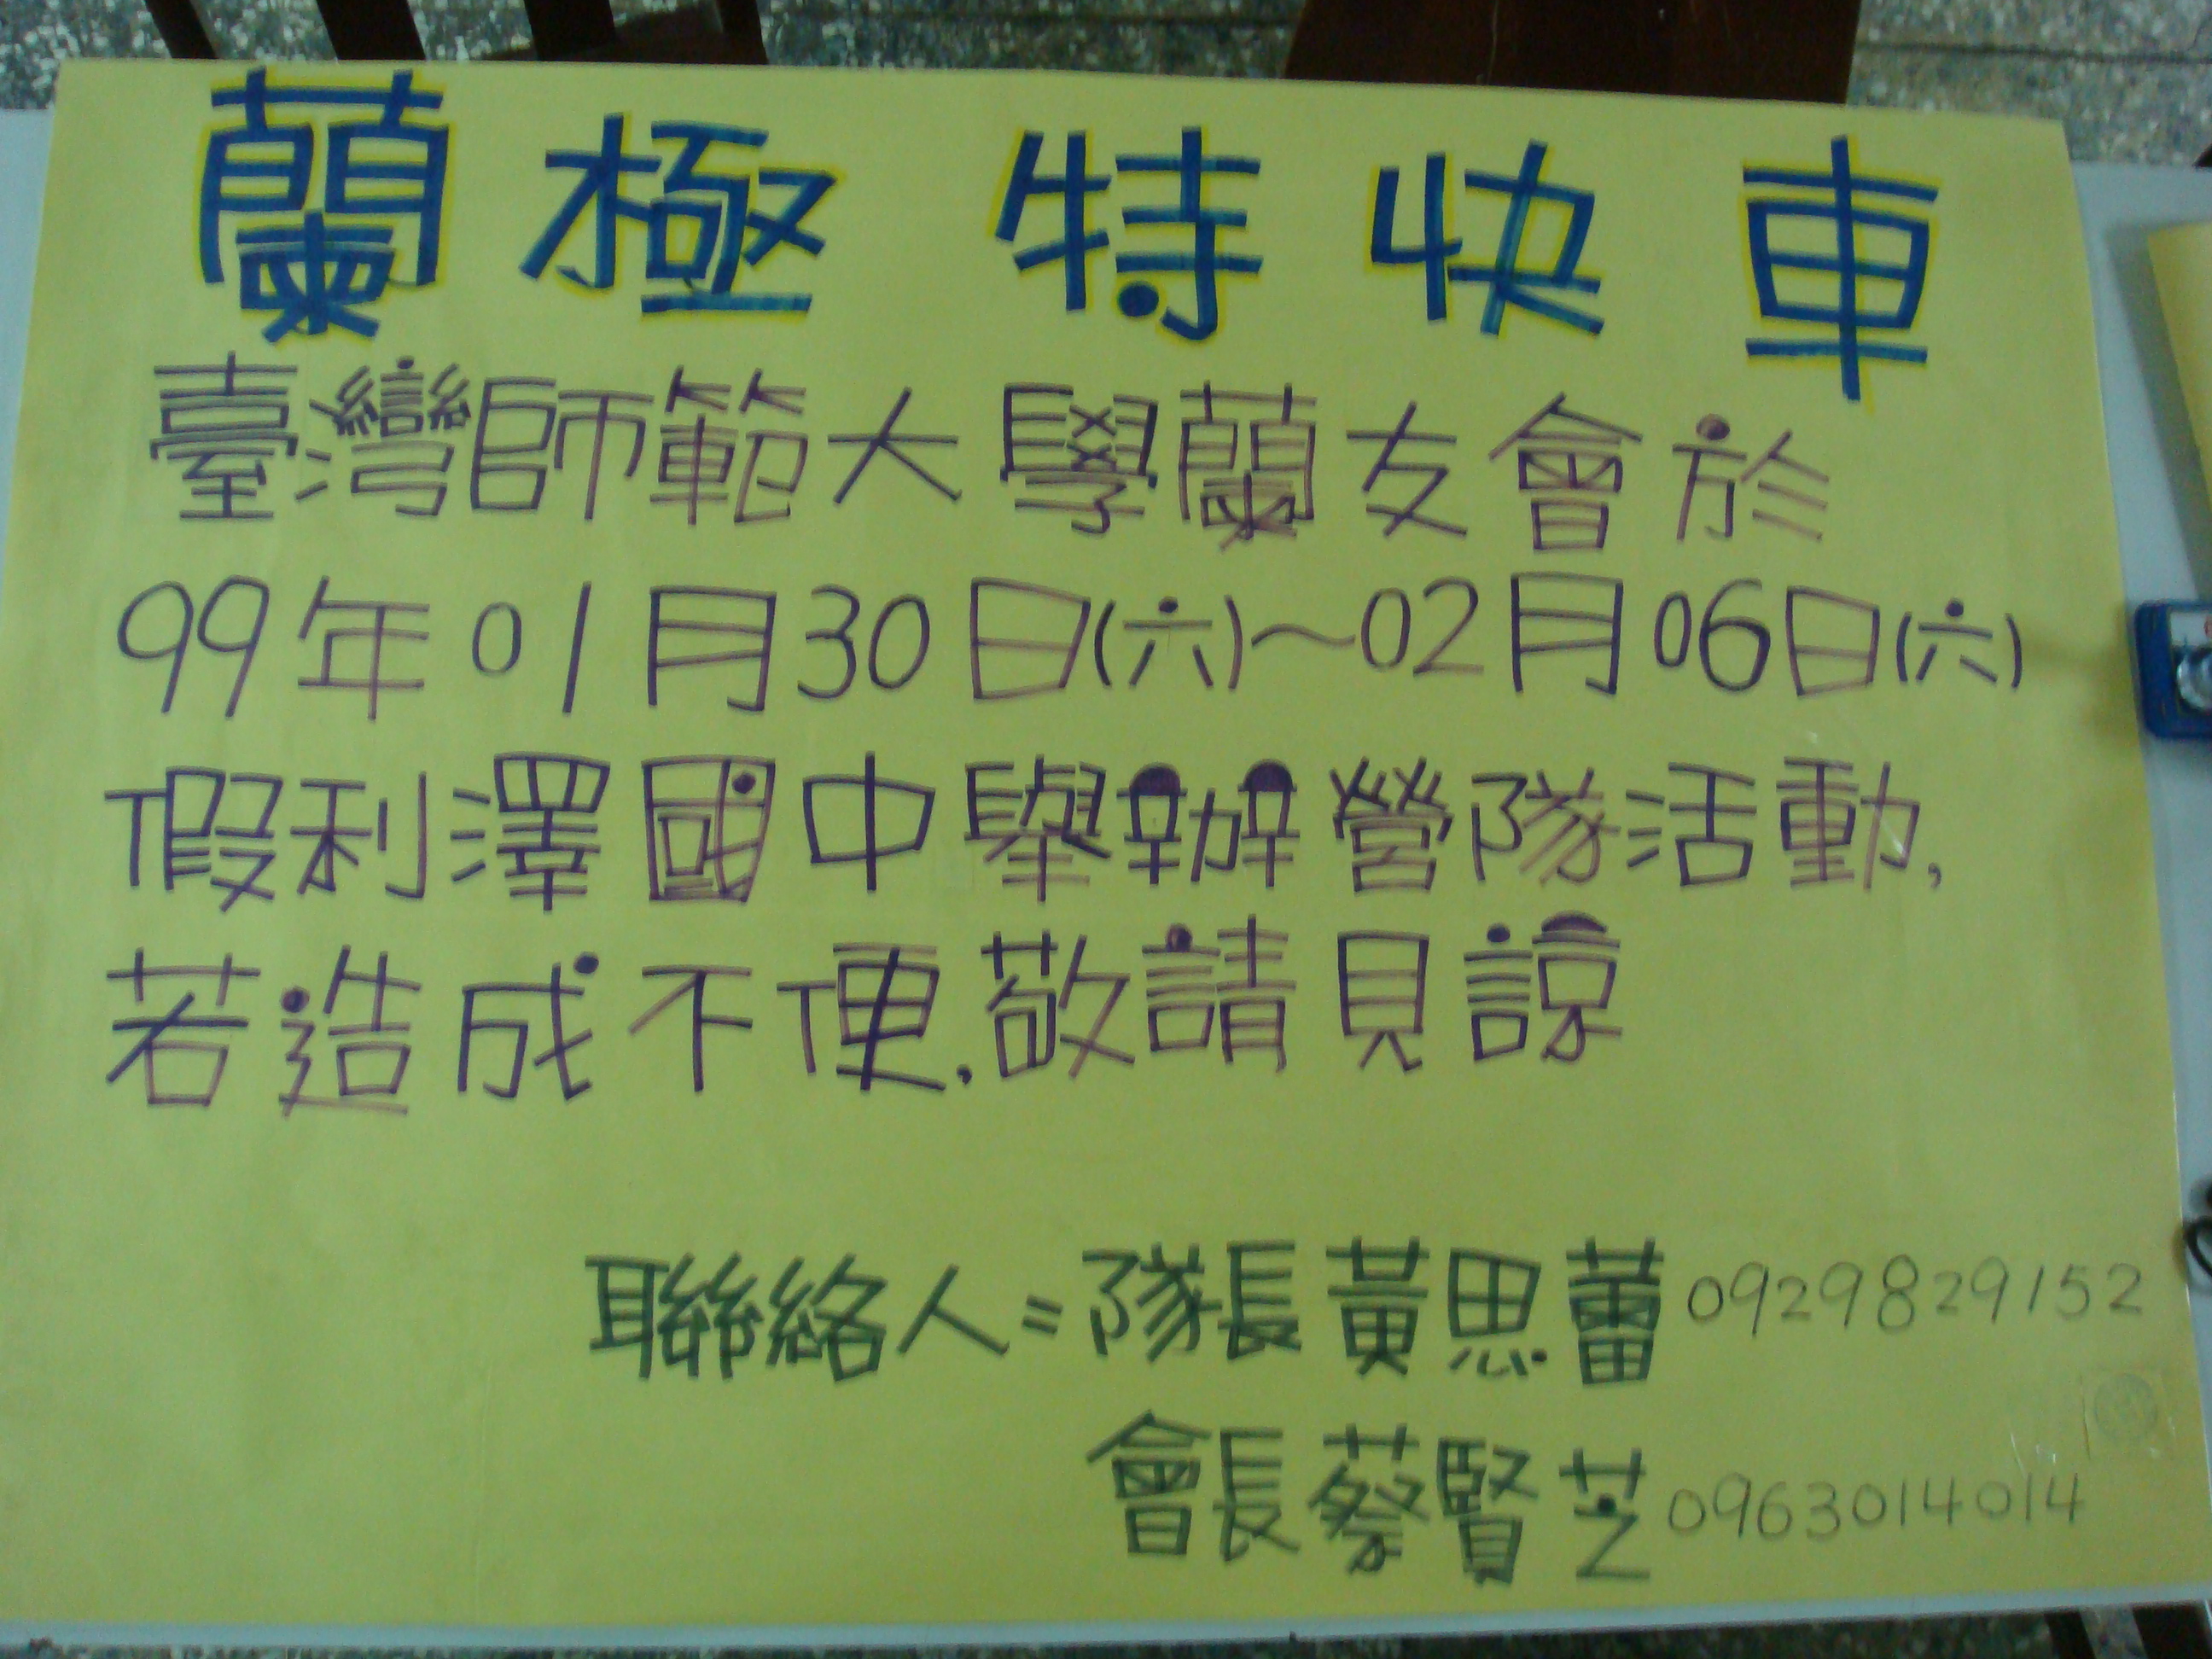 蘭極特快車
臺灣師範大學蘭友會於
99年01月30日(六)~02月06日(六)
假利澤國中舉辦營隊活動,
若造成不便,敬請見諒
聯絡人=隊長黃思蕾0929829152
會長蔡賢芝0963014014